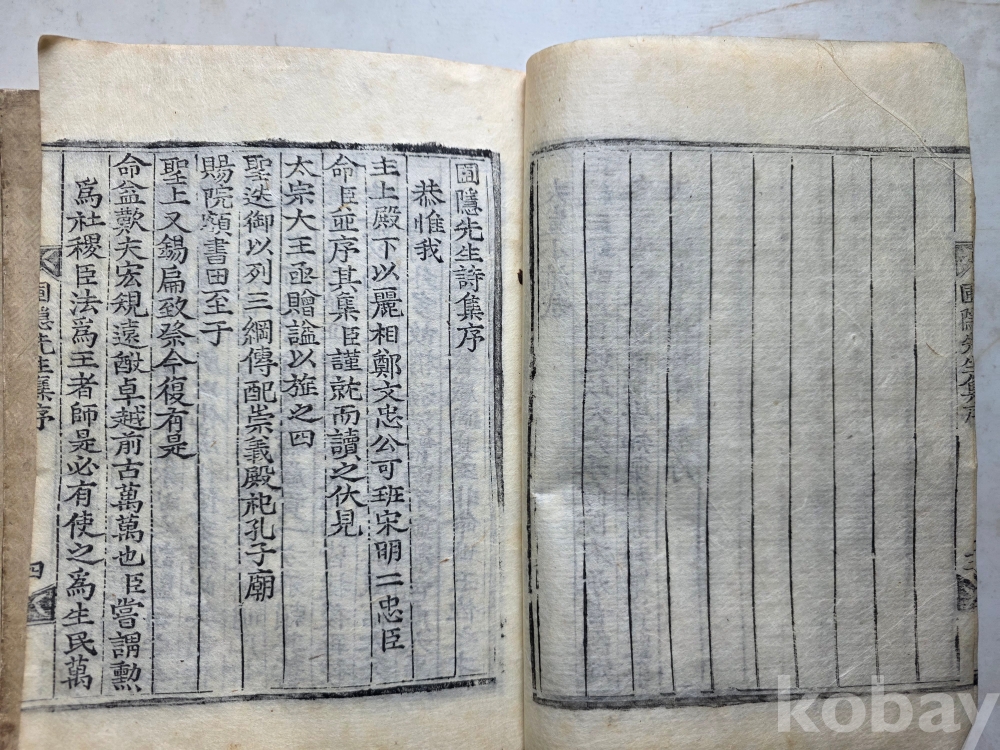 圃隱先生集序
圃隱先生詩集序
恭惟我
主上殿下以麗相鄭文忠公可班宋明二忠臣
命臣並序其集臣謹就而讀之伏見
太宗大王亟贈諡以旌之四
聖迭御以列三綱傳配崇義殿祀孔子廟
賜院額書田至于
聖上又錫扁致祭今復有是
命益歎夫宏規遠猷卓越前古萬萬也臣嘗謂勲
爲社稷臣法爲王者師是必有使之爲生民萬
圃隱先生集序
四
kobay